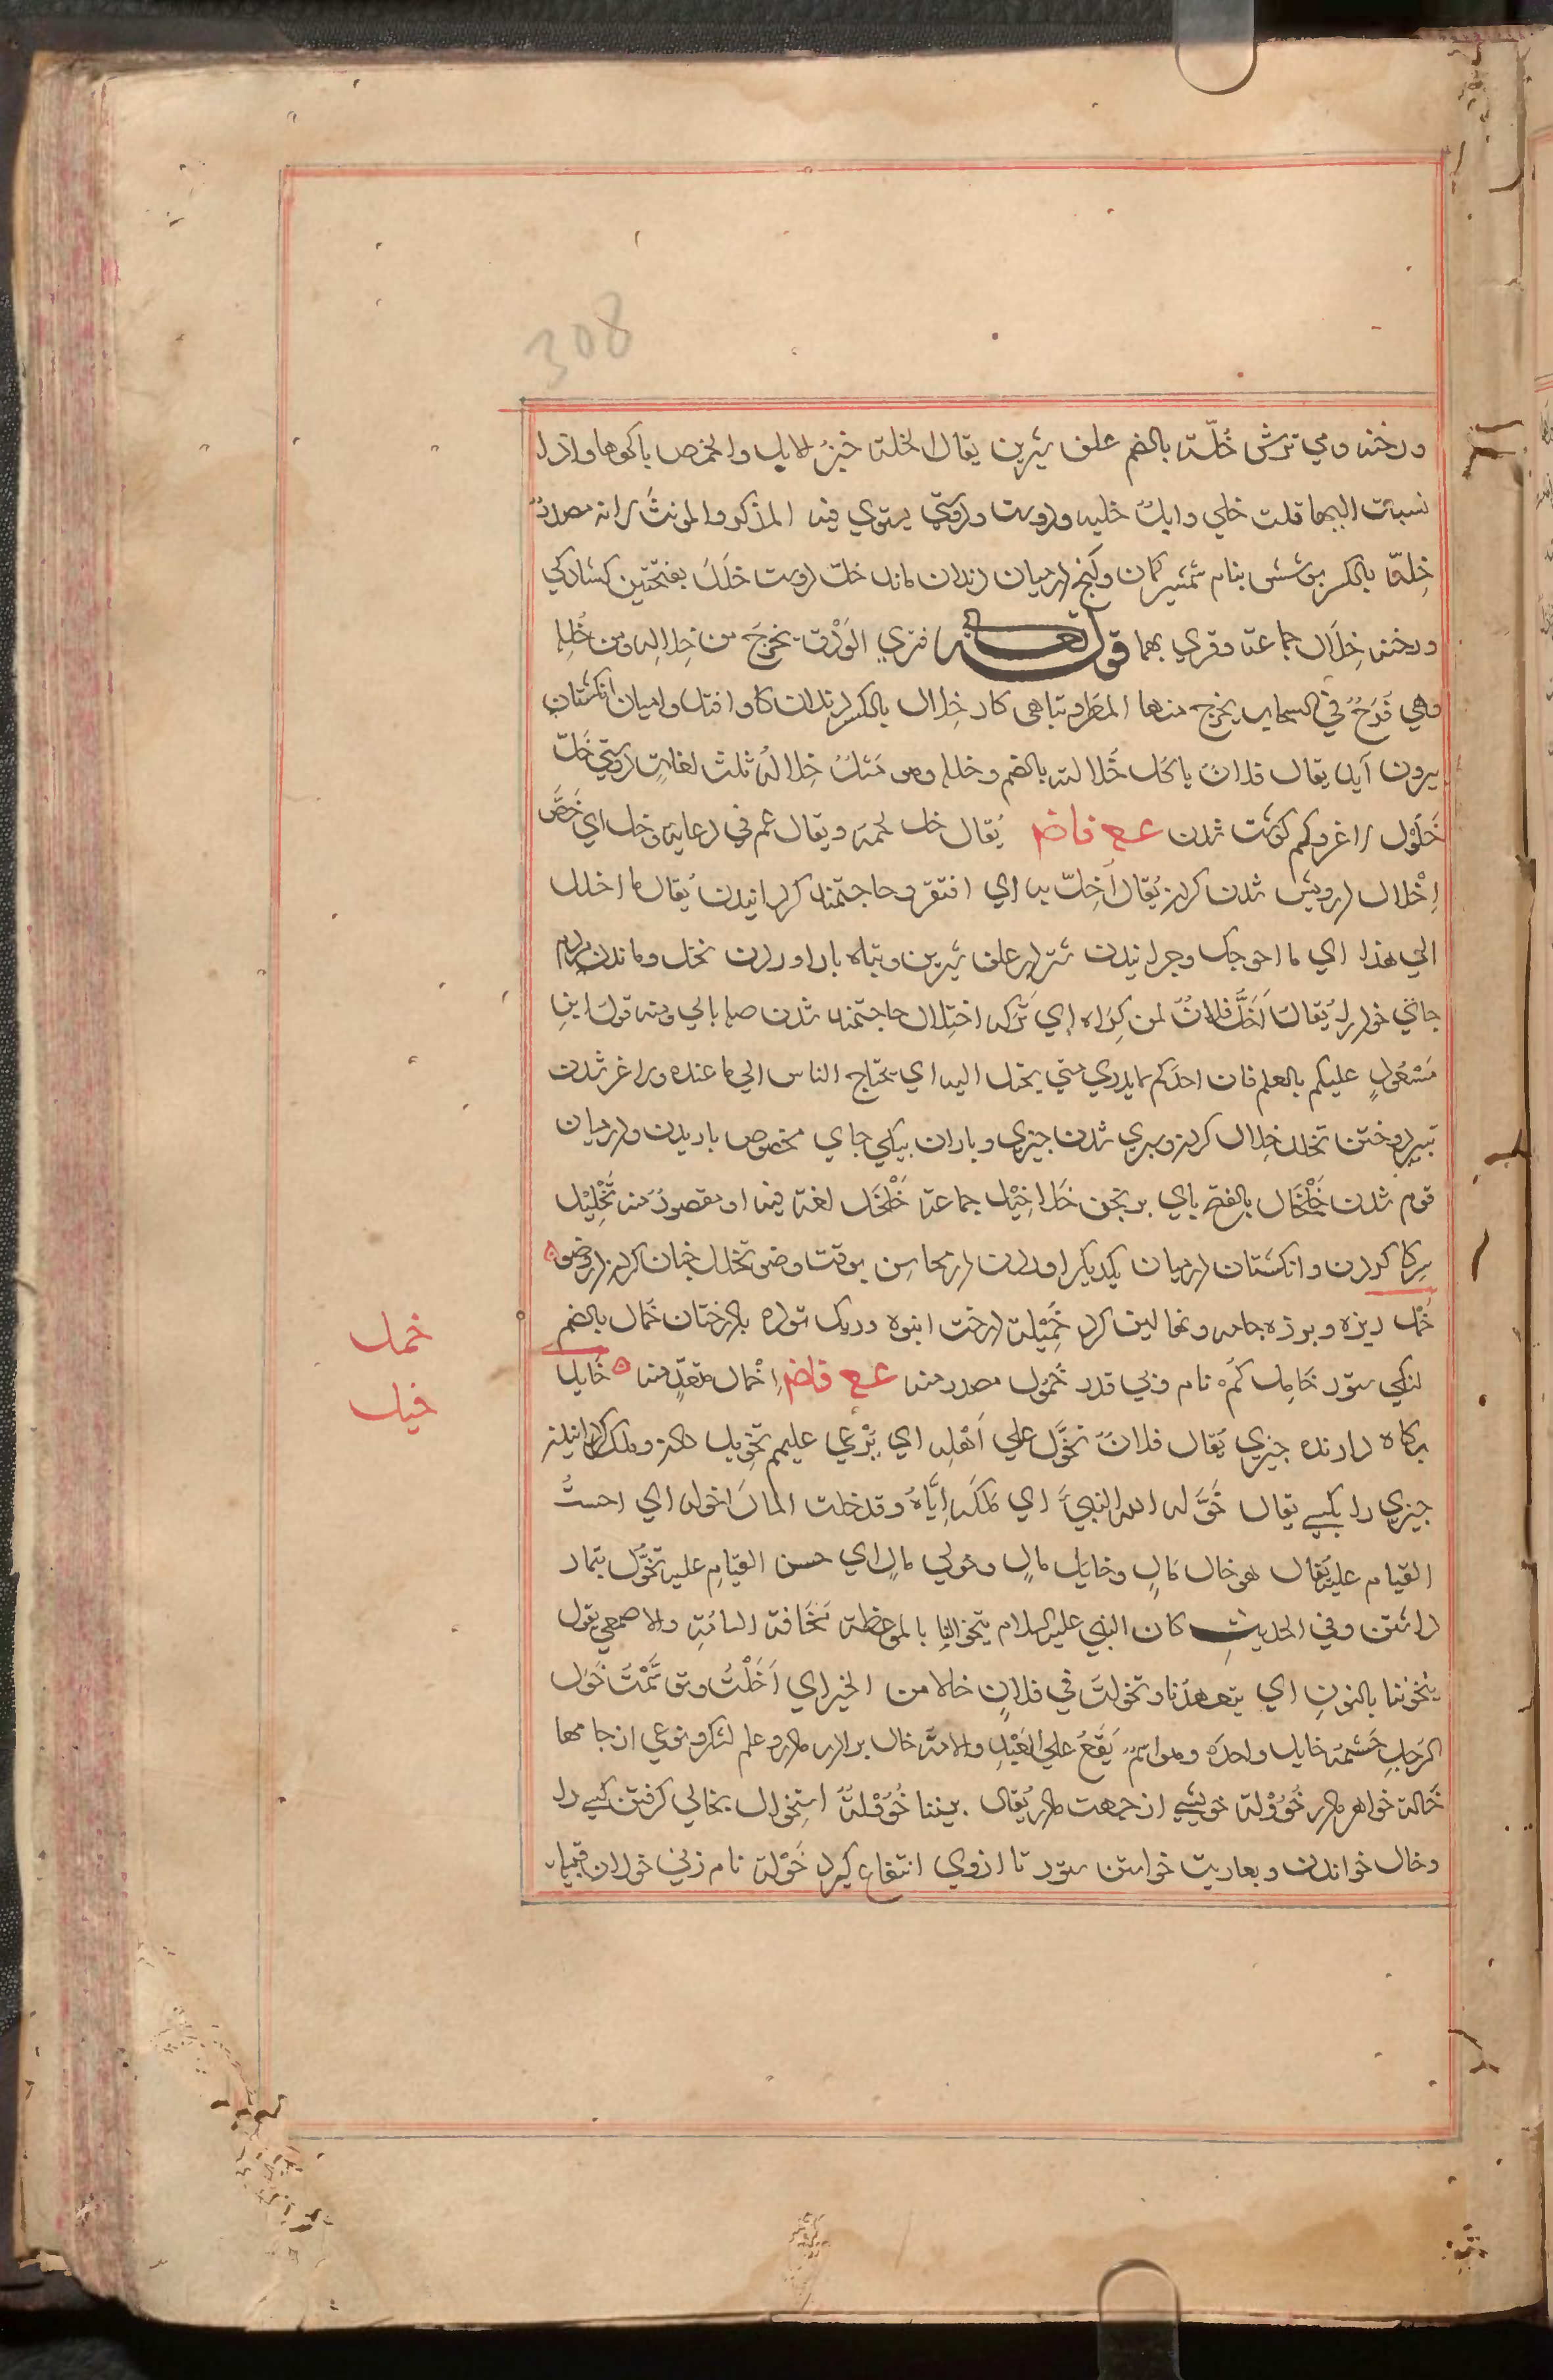 308
ورخنه ومي ترش خُلّة بالضم علف شیرین يقال الخلة خبزُ الابل والحمض فاكهتها واذا
نسبت اليها قلت خلي وابلٌ خلیه ودوست ودوستي يستوي فيه المذكر والمونث لانه مصدرٌ
خِلةّ بالكسر پوشش نیام شمشیر کمان وآنچه درمیان دندان ماند خلّ دوست خلَلَ بفتحتین کشادکي
ورخنه خِلَال جماعة وقري بهما قوله تعالى فتري الوَدْق يخرجَ من خِلالِه ومن خُللِه
وهي فُرَجٌ في السحاب يخرج منها المطر وتباهى كار خِلال بالكسر دندان كاو وافتد وازميان انكشتان
بیرون آید يقال فلانٌ ياكل خُلالته بالضم وخلله وهو مَثلُ خِلالُه ثلث لغاتٍ دوستي خَلّ
خَلوْل لاغر وكم كوشت شدن ع ع فاضم يُقال خل لحمه ويقال عم في دعايه وخل اي خصَّ
اِخْلال درويش شدن كردن يُقال اُخِلّ به اي افتقر وحاجتمند كردانیدن يُقال ما اخلل
الي هذا اي ما احوجك وچرانیدن شتر در علف شیرین وتباه بار اوردن نخل وماندن مردم
جاي خود را يُقال اَخَلَّ فلانٌ لمن كِراه اي تَركه اختِلال حاجتمند شدن صله بالي ومنه قول ابنِ
مَسْعُولٍ عليكم بالعلم فان احدكم لايدري متي يختل اليه اي يحتاج الناس الي ما عنده ولاغر شدن
بتیر دوختن تخلل خِلال كردن وسپري شدن چيزي وباران بيكي جاي مخصوص باريدن ودرمیان
قوم شدن خَلْخَال بالفتح پاي برنجن خَلاخِيْل جماعة خَلْخَل لغة فيه او مقصورٌ منه تَخْلِيْل
سرکا کردن وانکشتان درمیان یکدیکر اوردن در محاسن بوقت وضو تخلل خِیان كردن در وضو
خُمْل ریزه وپرزه جامه ونهالین کرد خَمِيْلة درخت انبوه وریک توده با درختان خُمال بالضم
لنکي ستور خَامِل كُمْ نام وبي قدر خُمُول مصدر منه ع ع فاضم اِخْمال متعدٍ منه خَايل
نكاه دارنده چيزي يُقال فلانٌ يخوَّل علي اَهْلِه اي يَرْعي عليهم تخْوِيل دادن وملك كردانیدن
چيزي را بكسي يقال خَوَّله الله الشيَّ اي مَلّكَه اِيّاهُ وقد خلت المالَ اخوله اي احسنتُ
القيام عليه يُقال هو خال مَالٍ وخايل مالٍ وخولي مالٍ اي حسن القيامِ عليه تخوُّل تیمار
داشتن وفي الحديثِ كان النبي عليه السلام يتخولنا بالموعظة مَخَافة السامَّةِ والاصمعي يقول
يتخوننا بالنونِ اي يتعهدُنا وتخولتَ في فلانٍ خالا من الخير اي اَخَلْتُ وتوسَّمْتُ خَوَل
الرَجلِ حَشمه خايل واحدَه وهو اسمٌ يَقَعُ علي العَبْدِ والامَة خال برادر مادر وعلم لشكر ونوعي از جامها
خَالة خواهر مادر خُؤُوْلة خویشي از جهت مادر يُقال بيننا خُؤُوْلةٌ استِخْوال بخالي كرفتن كسي را
وخال خواندن وبعاريت خواستن ستور تا ازوي انتفاع كيرد خَوْلة نام زني خولان قبيله
خمل
خيل